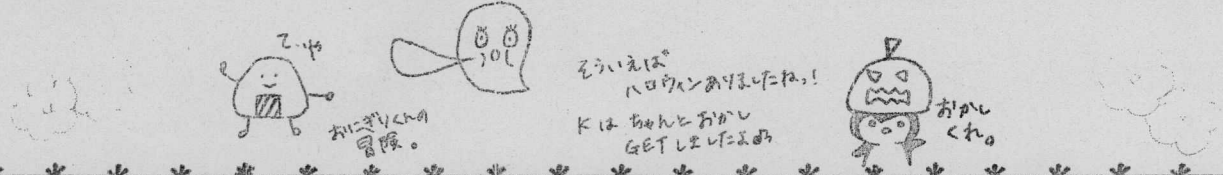 てゃ
おにぎりくんの
冒険。
そういえば
ハロウィンありましたねっ!
Kは ちゃんと おかし
GETしましたよ
おかし
くれ。